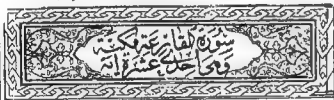 سورة القارعة مكية
وهي احدى عشرة اية